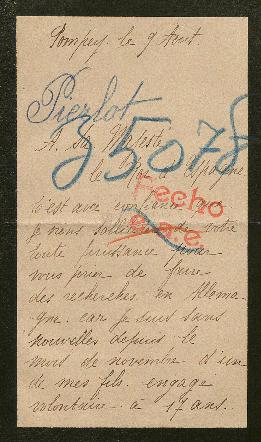 Pompey. le 9 Aout.
Pierlot
35078
A. Sa Majesté
le Roi d'Espagne
fecho
C'est avec confiance que
je viens solliciter de votre
toute puissance pour
vous prier de faire
des recherches en Allema-
gne. car je suis sans
nouvelles depuis le
mois de novembre d'un
de mes fils. engagé
volontaire à 17 ans.